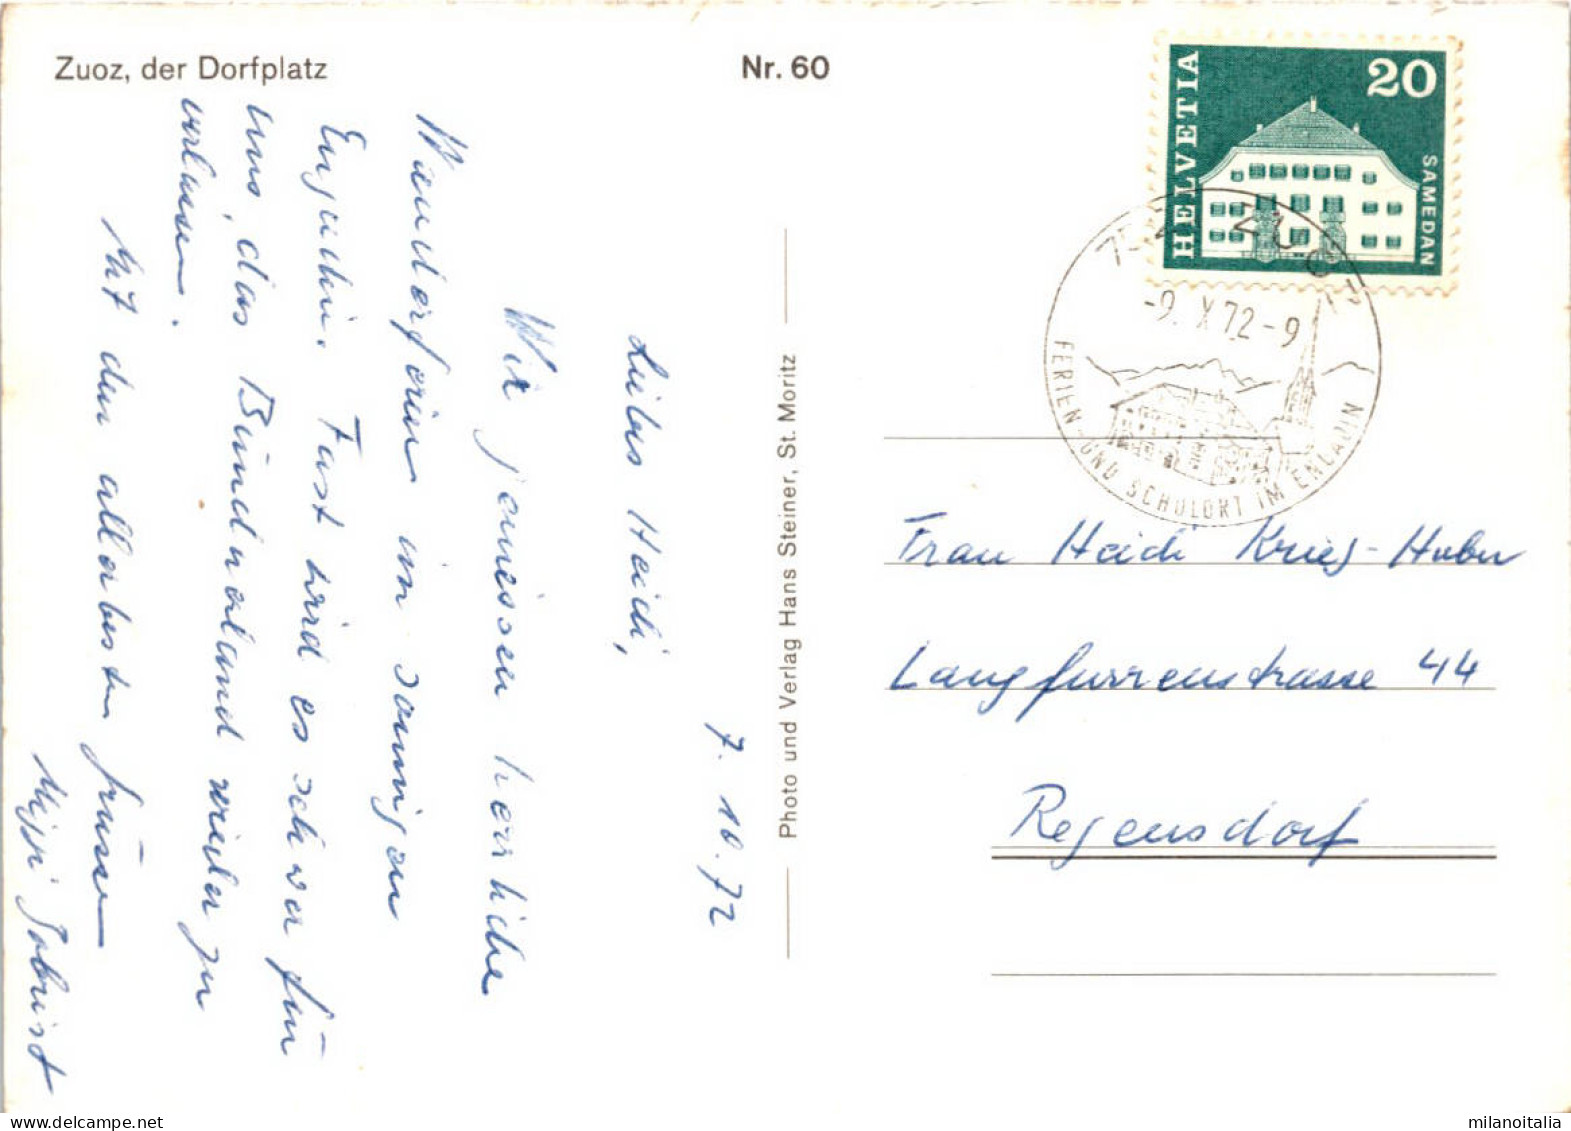 Zuoz, der Dorfplatz
Nr. 60
HELVETIA
20
SAMEDAN
ZUOZ
-9. X 72-9
FERIEN- UND SCHULORT IM ENGADIN
Photo und Verlag Hans Steiner, St. Moritz
7. 10. 72
Liebes Heidi,
Wir geniessen herrliche
Wanderferien im sonnigen
Engadin. Fast wird es schwer für
uns, das Bündnerland wieder zu
verlassen.
Mit den allerbesten Grüssen
Frau Heidi Krieg-Huber
Langfurrenstrasse 44
Regensdorf
milanoitalia